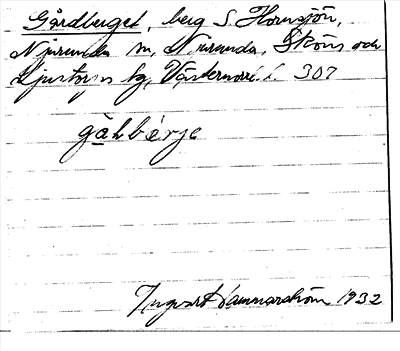 Gårdberget, berg S. Hornsjön,
Njurunda sn, Njurunda, Sköns och
Ljustorps tg, Västernorrl. l. 307
gåḷbérje
Ingvar Hammarström 1932